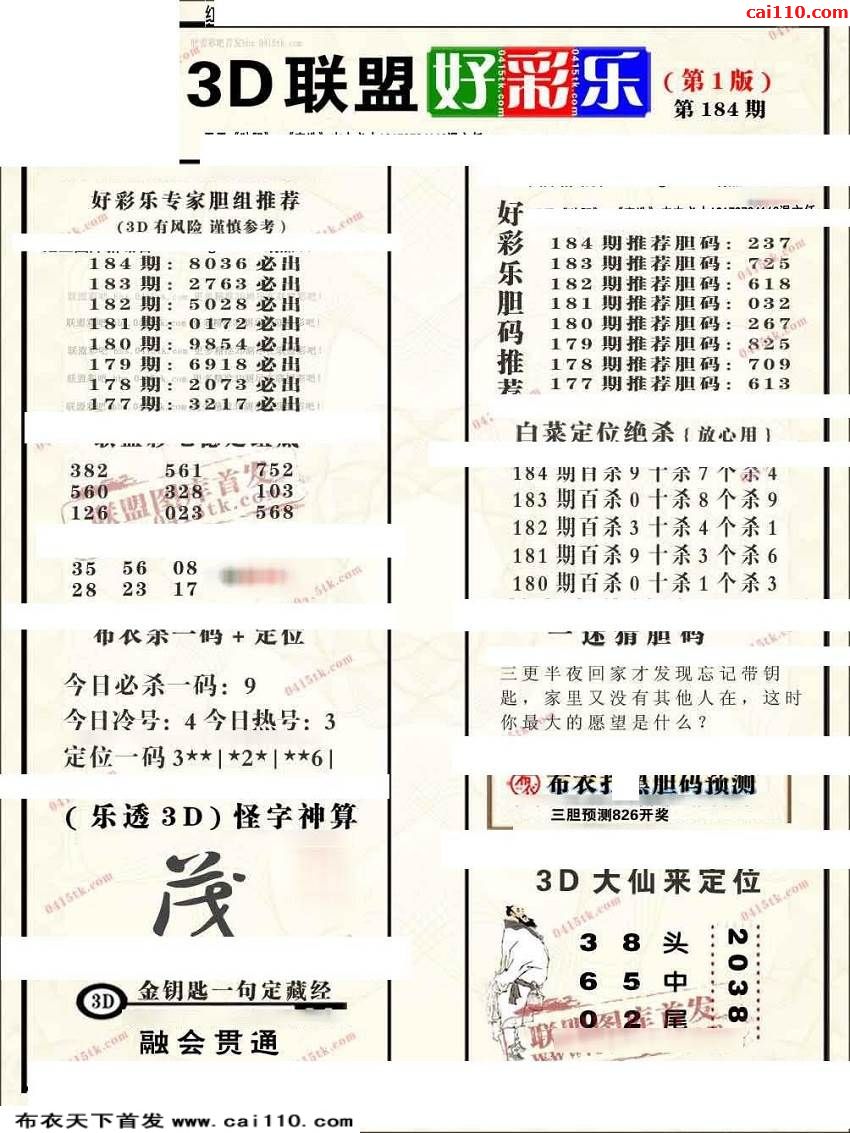 cai110.com
3D联盟 好彩乐 (第1版)
第184期
好彩乐专家胆组推荐
(3D有风险 谨慎参考)
184期：8036必出
183期：2763必出
182期：5028必出
181期：0172必出
180期：9854必出
179期：6918必出
178期：2073必出
177期：3217必出
382 561 752
560 328 103
126 023 568
35 56 08
28 23 17
布衣杀一码+定位
今日必杀一码：9
今日冷号：4 今日热号：3
定位一码 3**|*2*|**6|
(乐透3D)怪字神算
茂
3D 金钥匙一句定藏经
融会贯通
好彩乐胆码推荐
184期推荐胆码：237
183期推荐胆码：725
182期推荐胆码：618
181期推荐胆码：032
180期推荐胆码：267
179期推荐胆码：825
178期推荐胆码：709
177期推荐胆码：613
白菜定位绝杀{放心用}
184期百杀9十杀7个杀4
183期百杀0十杀8个杀9
182期百杀3十杀4个杀1
181期百杀9十杀3个杀6
180期百杀0十杀1个杀3
一迷猜胆码
三更半夜回家才发现忘记带钥
匙，家里又没有其他人在，这时
你最大的愿望是什么？
胆码预测
三胆预测826开奖
3D大仙来定位
3 8 头
6 5 中
0 2 尾
2038
联盟图库首发
布衣天下首发 www.cai110.com